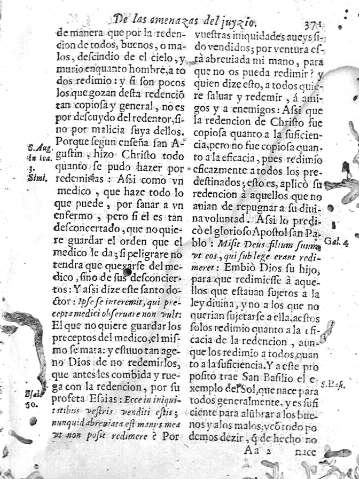 De las amenazas del juyzio. 371
de manera que por la reden-
cion de todos, buenos, o ma-
los, descindio de el cielo, y
murio en quanto hombre, a to
dos redimio: y si son pocos
los que gozan desta redenciõ
tan copiosa y general, no es
por descuydo del redentor, si-
no por malicia suya dellos.
Porque segun enseña san A-
gustin, hizo Christo todo
quando se pudo hazer por
redemirnos: Assi como vn
medico, que haze todo lo
que puede, por sanar a vn
enfermo, pero si èl es tan
desconcertado, que no quie-
re guardar el orden que el
medico le da; si peligrare no
tendra que quexarse del me-
dico, sino de sus desconcier-
tos: Y assi dize este santo do-
ctor: Ipse se interemit, qui pre-
cepta medici obseruare non vult:
El que no quiere guardar los
preceptos del medico, el mis-
mo se mata: y estuuo tan age-
no Dios de no redemirlos,
que antes les combida y rue-
ga con la redencion, por su
profeta Esaias: Ecce in iniqui-
tatibus vestris venditi estis;
nunquid abreuiata est manus mea
vt non possit redimere è Por
S. Aug.
in ioa.
3.
Simi.
50.
vuestras iniquidades aueys si-
do vendidos; por ventura es-
tà abreuiada mi mano, para
que no os pueda redimir? y
quien dize esto, a todos quie-
re saluar y redemir, á ami-
gos y a enemigos: Assi que
la redencion de Christo fue
copiosa quanto a la suficien-
cia, pero no fue copiosa quan-
to a la eficacia, pues redimio
eficazmente a todos los pre-
destinados; esto es, aplicò su
redencion a aquellos que no
anian de repugnar a su diui-
na voluntad. Assi lo predi-
cò el glorioso Apostol san Pa-
blo: Misit Deus filium suum
vt eos, qui sub lege erant redi-
meret: Embiò Dios su hijo,
para que redimiesse à aque-
llos que estauan sujetos a la
ley diuina, y no a los que no
querian sujetarse a ella, a estos
solos redimio quanto a la efi-
cacia de la redencion, aun-
que los redimio a todos quan
to a la suficiencia. Y a este pro
posito trae San Basilio el e-
xemplo del Sol, que nace para
todos generalmente, y es sufi
ciente para alũbrar a los bue-
nos y a los malos; y cõ todo po
demos dezir, q̃ de hecho no
Gal. 4
S. Bas.
Aa 2 nace